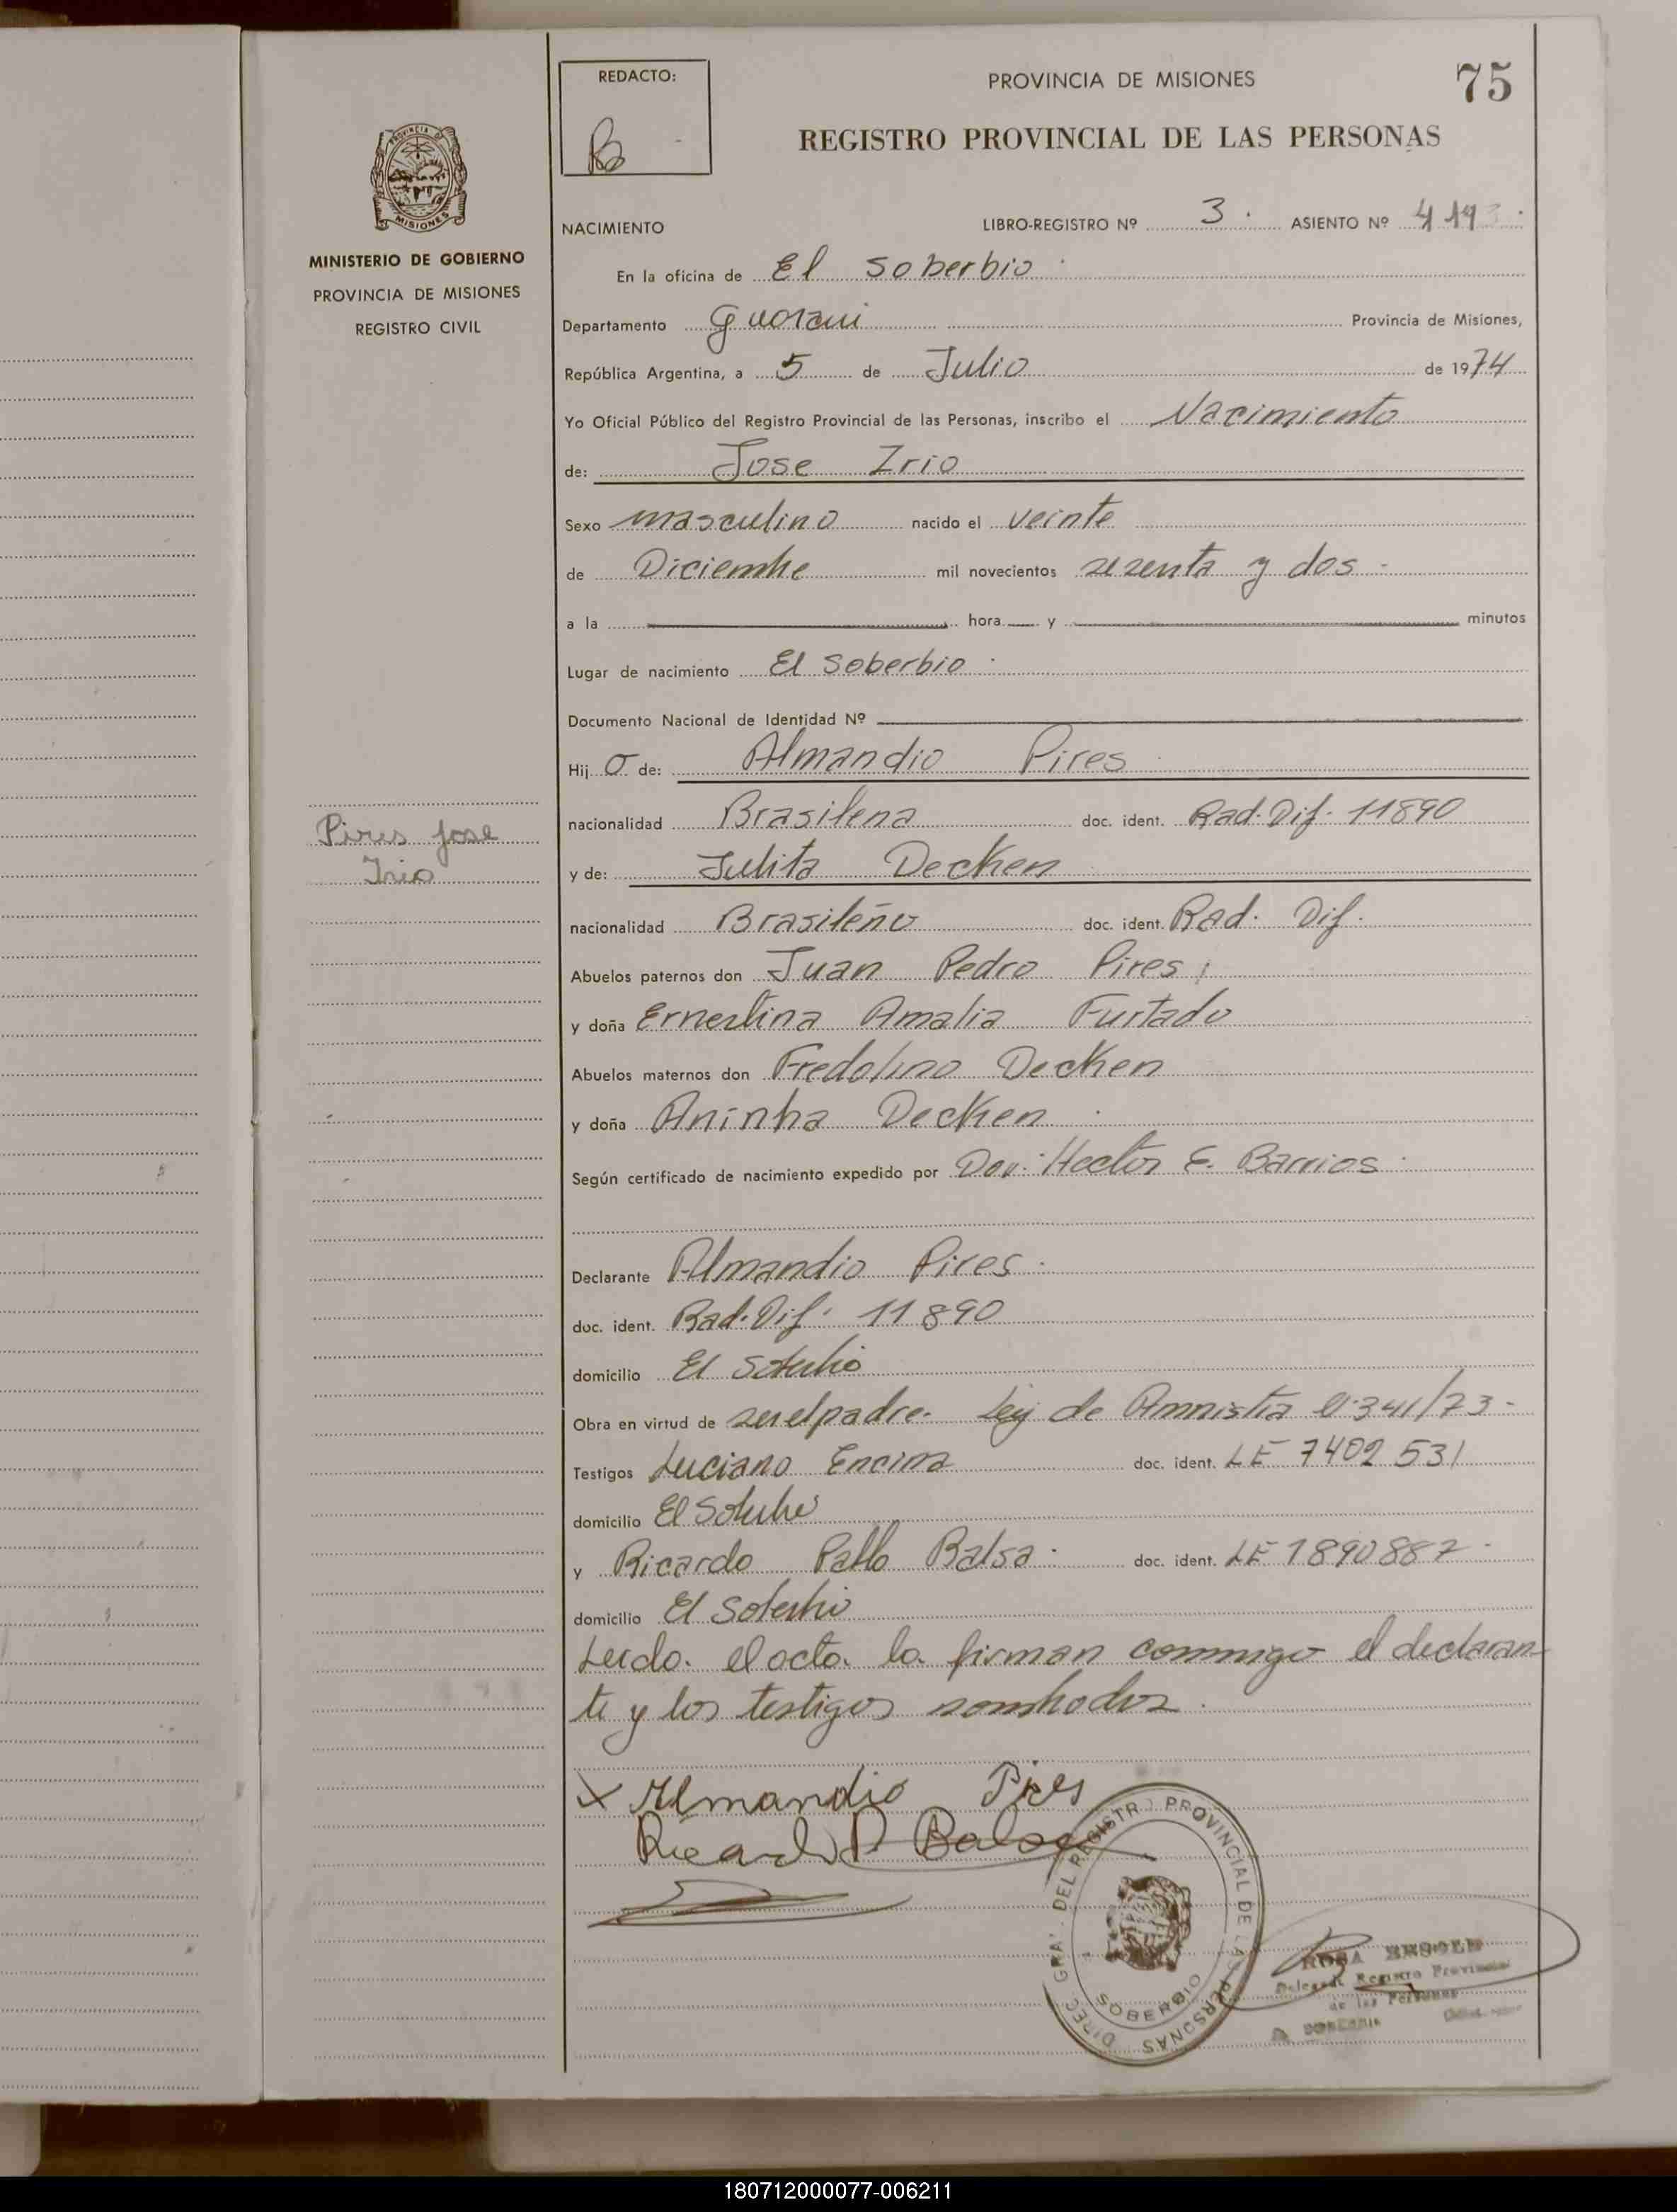 75
REDACTO:
PROVINCIA DE MISIONES
REGISTRO PROVINCIAL DE LAS PERSONAS
PROVINCIA DE
MISIONES
MINISTERIO DE GOBIERNO
PROVINCIA DE MISIONES
REGISTRO CIVIL
NACIMIENTO LIBRO-REGISTRO Nº 3. ASIENTO Nº
En la oficina de El Soberbio
Departamento Guarani Provincia de Misiones,
República Argentina, a 5 de Julio de 1974
Yo Oficial Público del Registro Provincial de las Personas, inscribo el Nacimiento
de: Jose Irio
Sexo masculino nacido el veinte
de Diciembre mil novecientos sesenta y dos
a la hora y minutos
Lugar de nacimiento El Soberbio
Documento Nacional de Identidad Nº
Hij o de: Almandio Pires
nacionalidad Brasilena doc. ident. Rad. Dif. 11890
Pires Jose
Irio
y de: Julita Decken
nacionalidad Brasileño doc. ident. Rad. Dif.
Abuelos paternos don Juan Pedro Pires
y doña Ernestina Amalia Furtado
Abuelos maternos don Fredolino Decken
y doña Aninha Decken
Según certificado de nacimiento expedido por Hector E. Barrios
Declarante Almandio Pires
doc. ident. Rad. Dif. 11890
domicilio El Soberbio
Obra en virtud de ser el padre. Ley de Amnistia 341/73
Testigos Luciano Encina doc. ident. LE 7402531
domicilio El Soberbio
y Ricardo Pablo Balsa doc. ident. LE 1890887
domicilio El Soberbio
Leido el acta la firman conmigo el declaran-
te y los testigos nombrados.
x Almandio Pires
Ricardo P Balsa
DIREC. GRAL. DEL REGISTRO PROVINCIAL DE LAS PERSONAS
SOBERBIO
ROSA
Delegada Registro Provincial
de las Personas
180712000077-006211